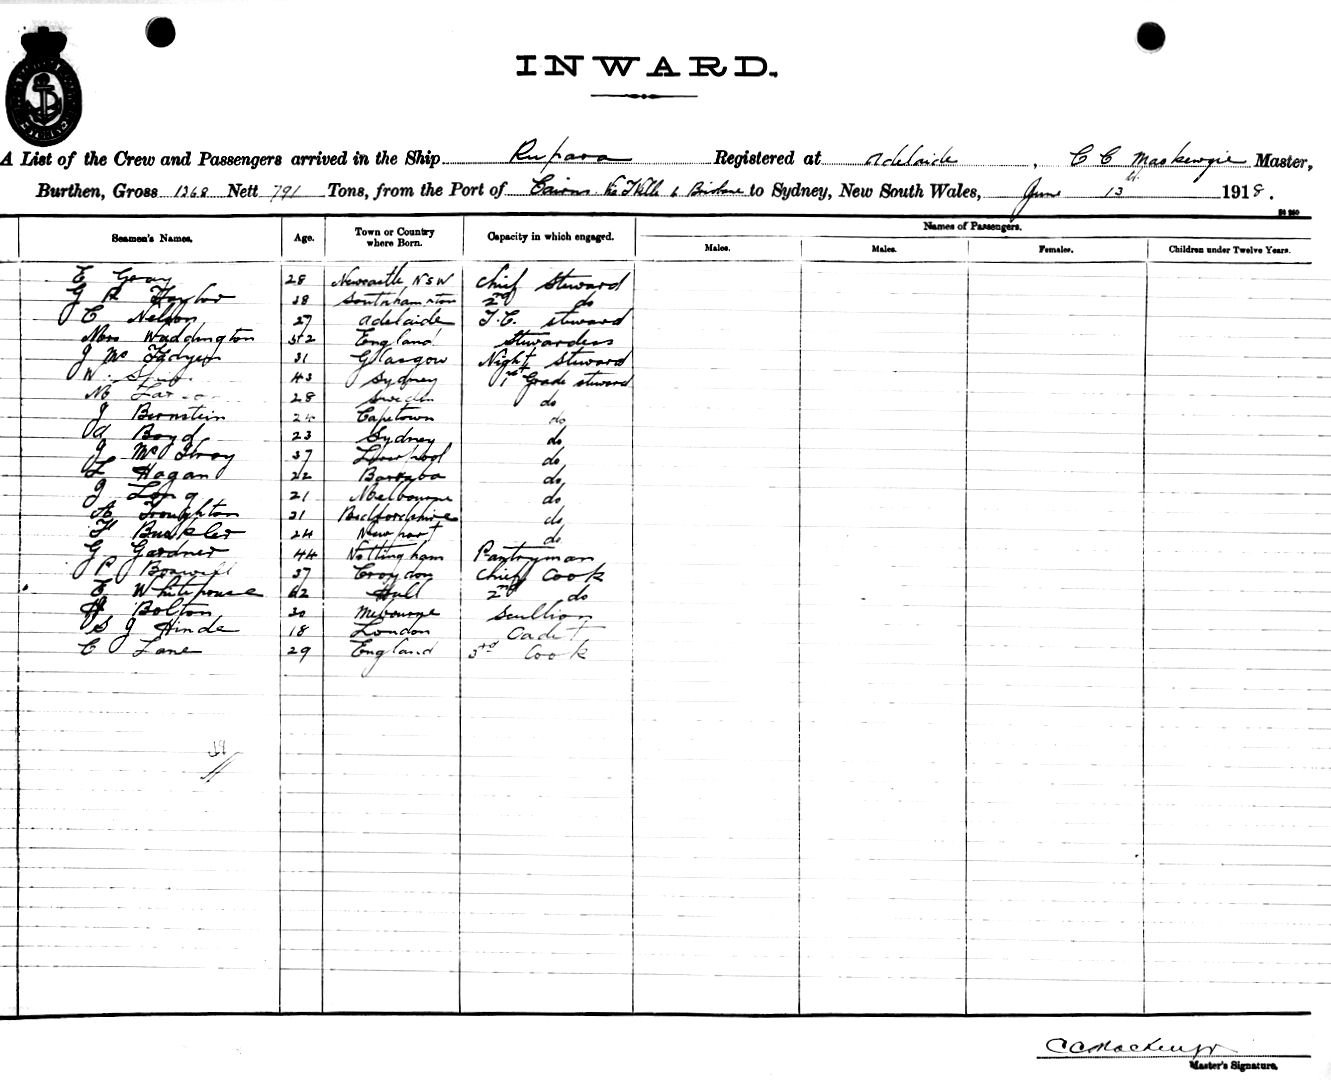 INWARD.
A List of the Crew and Passengers arrived in the Ship Rupara Registered at Adelaide, C C Mackenzie Master,
Burthen, Gross 1368 Nett 791 Tons, from the Port of Cairns Brisbane to Sydney, New South Wales, June 13th 1918.
Seamen's Names. Age. Town or Country where Born. Capacity in which engaged. Names of Passengers.
Males. Males. Females. Children under Twelve Years.
E Gray 28 Newcastle NSW Chief Steward
G R Taylor 38 Southampton 2nd do
C Nelson 27 Adelaide T.C. steward
Mrs Waddington 52 England Stewardess
J McFadyen 31 Glasgow Night Steward
W. 43 Sydney 1st Grade steward
M 28 Sweden do
J Bernstein 24 Capetown do
A Boyd 23 Sydney do
J McIlroy 37 Liverpool do
L Hagan 22 do
J Long 21 Melbourne do
A Troughton 21 Bedfordshire do
F Buckler 24 Newport do
G Gardner 44 Nottingham Pantryman
P Boswell 37 Croydon Chief Cook
E Whitehouse 42 Hull 2nd do
H Bolton 20 Melbourne Scullion
S J Hinde 18 London Cadet
C Lane 29 England 3rd Cook
CC Mackenzie
Master's Signature.